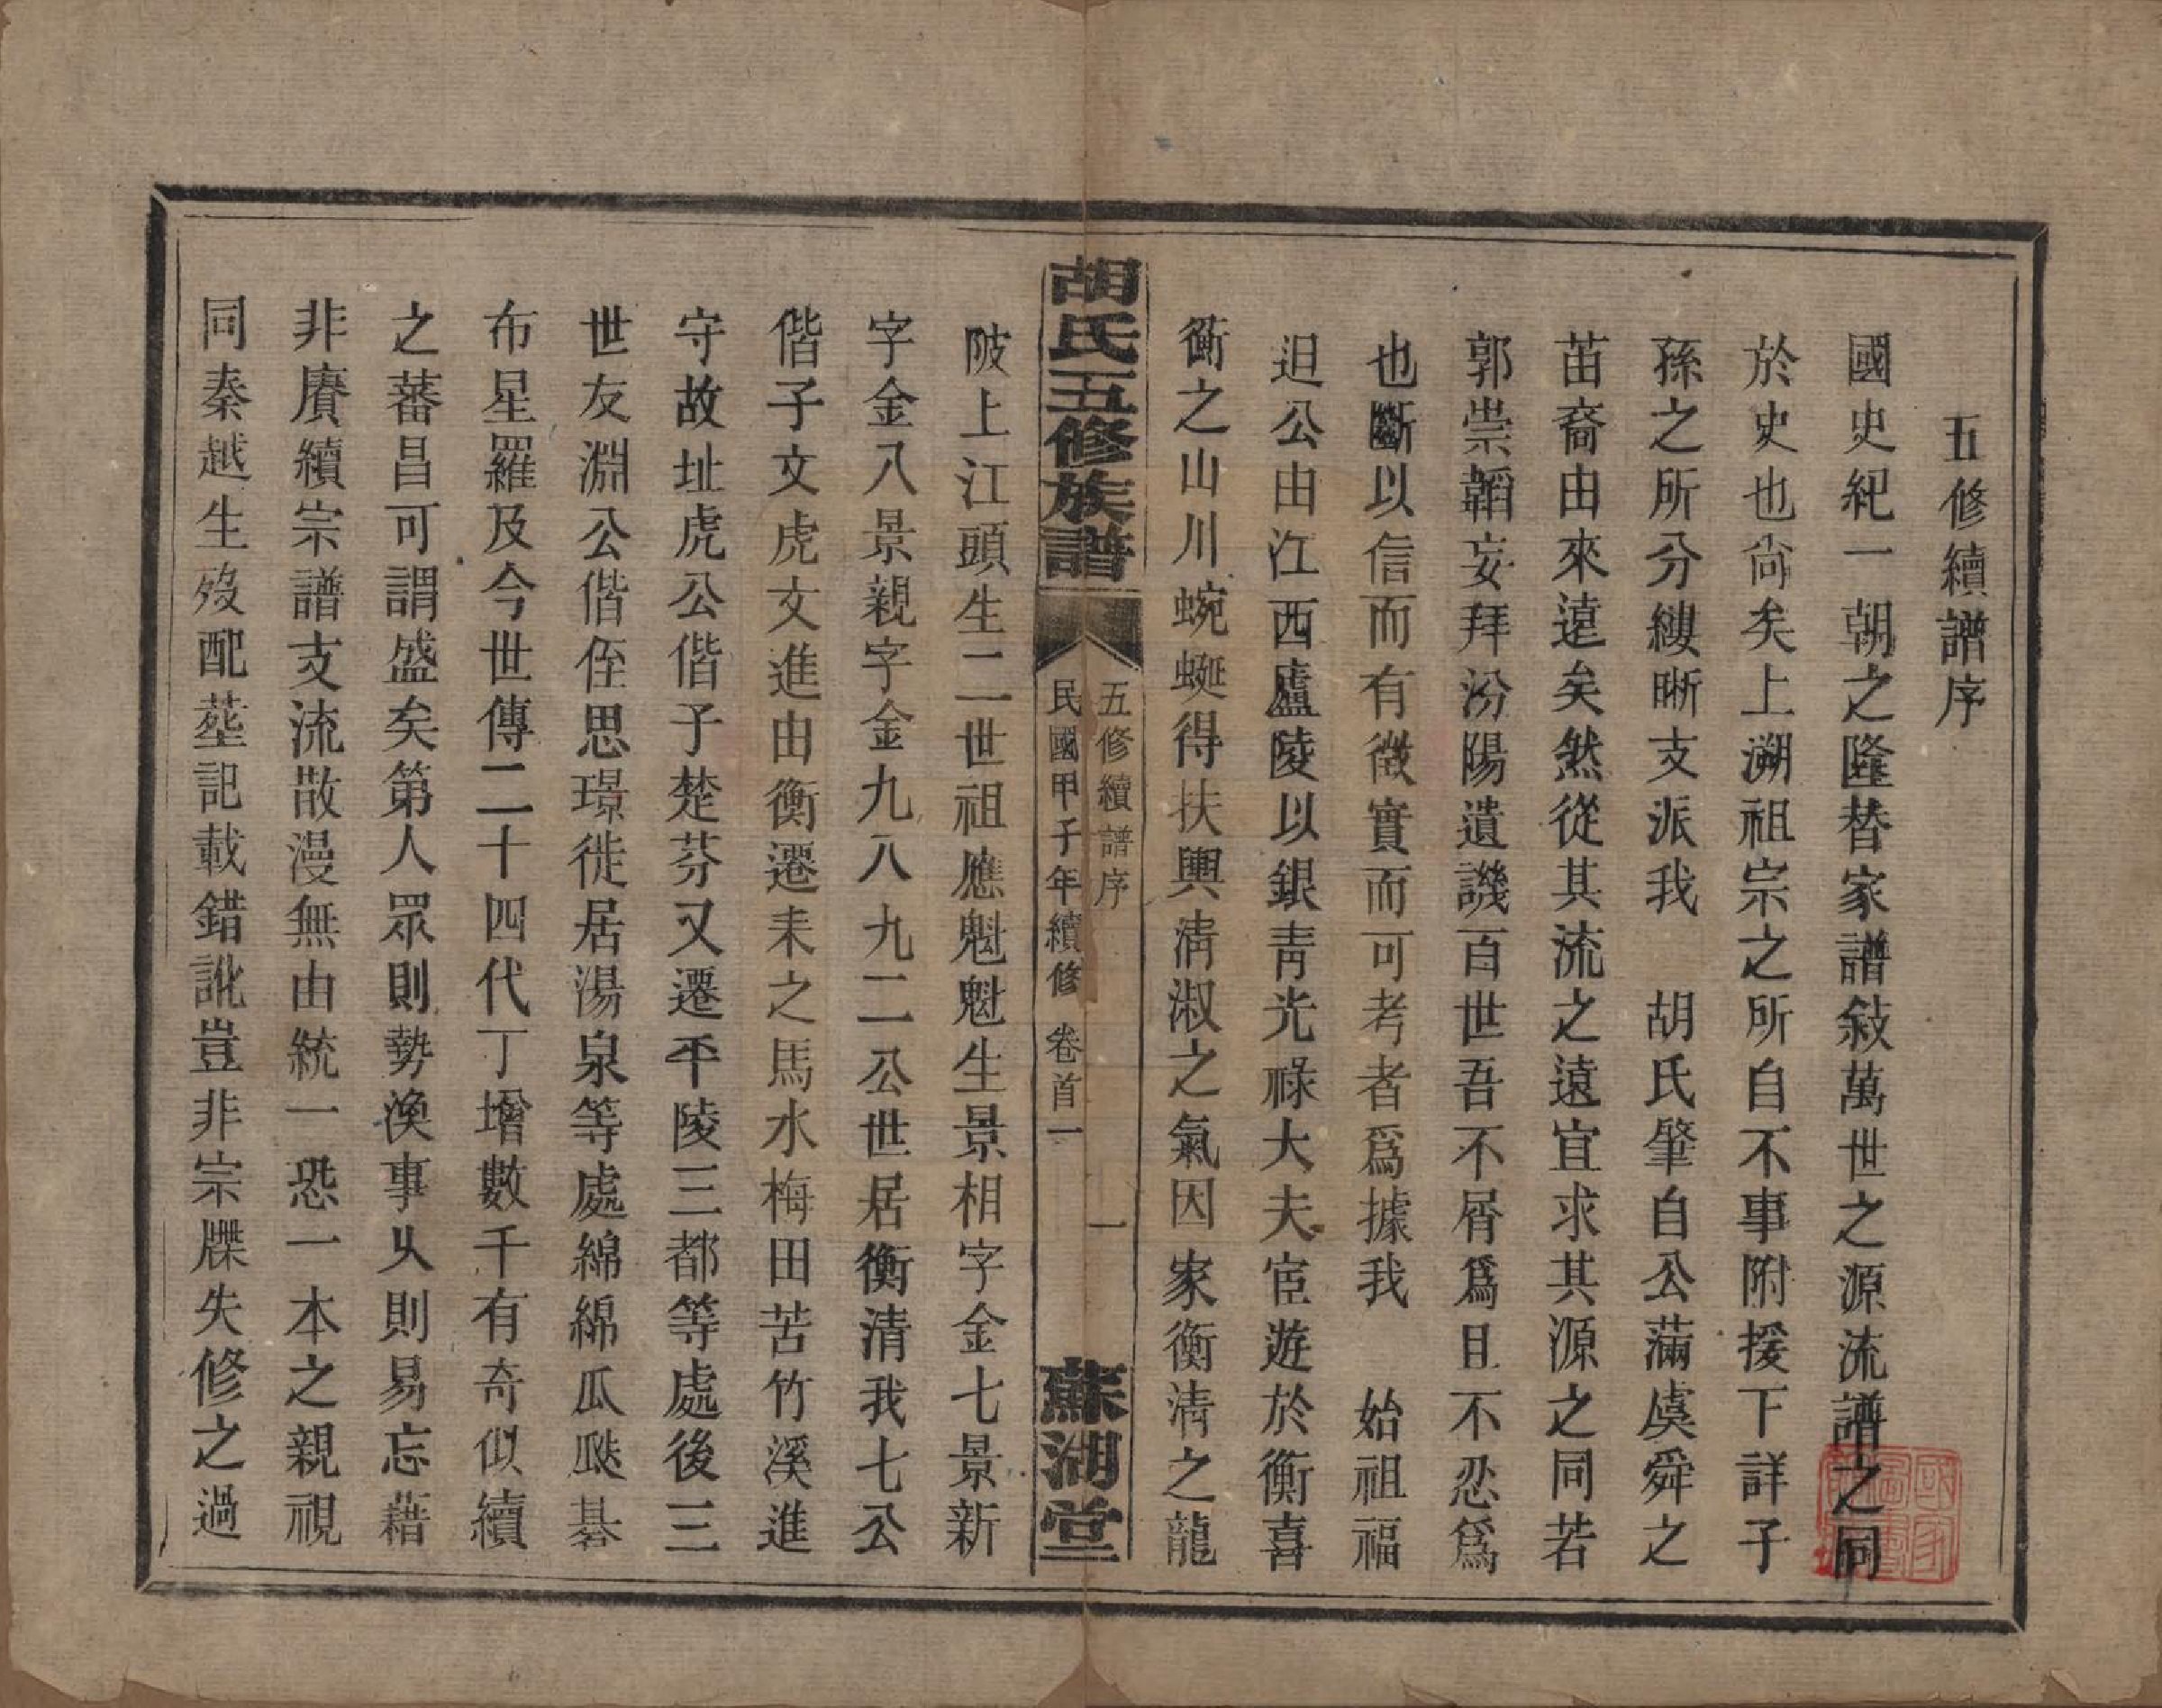 五修續譜序
國史紀一朝之隆替家譜敍萬世之源流譜之同
於史也尙矣上溯祖宗之所自不事附援下詳子
孫之所分縷晰支派我　胡氏肇自公滿虞舜之
苗裔由來遠矣然從其流之遠宜求其源之同若
郭崇韜妄拜汾陽遺譏百世吾不屑爲且不忍爲
也斷以信而有徵實而可考者爲據我　始祖福
迴公由江西廬陵以銀靑光祿大夫宦遊於衡喜
衡之山川蜿蜒得扶輿淸淑之氣因家衡淸之龍
胡氏五修族譜
五修續譜序
民國甲子年續修　卷首一
一
蘇湖堂
陂上江頭生二世祖應魁魁生景相字金七景新
字金八景親字金九八九二公世居衡清我七公
偕子文虎文進由衡遷耒之馬水梅田苦竹溪進
守故址虎公偕子楚芬又遷平陵三都等處後三
世友淵公偕侄思璟徙居湯泉等處綿綿瓜瓞碁
布星羅及今世傳二十四代丁增數千有奇似續
之蕃昌可謂盛矣第人眾則勢渙事久則易忘藉
非賡續宗譜支流散漫無由統一恐一本之親視
同秦越生歿配塟記載錯訛豈非宗牒失修之過